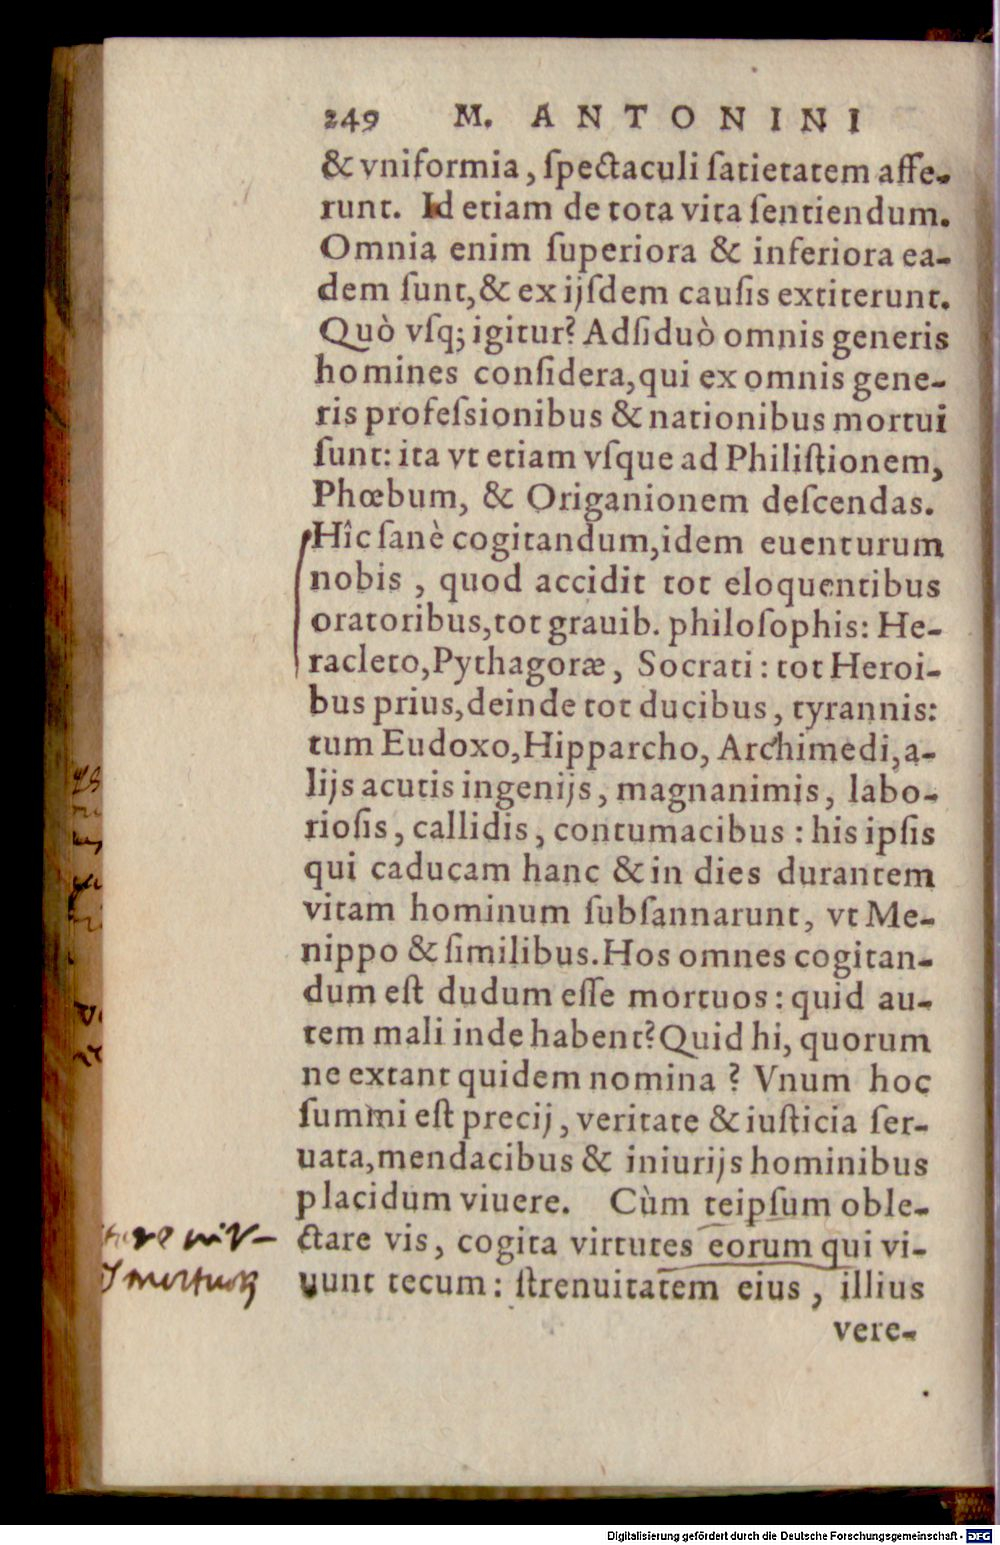 249 M. ANTONINI
& vniformia, ſpectaculi ſatietatem affe-
runt. Id etiam de tota vita ſentiendum.
Omnia enim ſuperiora & inferiora ea-
dem ſunt, & ex ijſdem cauſis extiterunt.
Quò vſq; igitur? Adſiduò omnis generis
homines conſidera, qui ex omnis gene-
ris profeſsionibus & nationibus mortui
ſunt: ita vt etiam vſque ad Philiſtionem,
Phœbum, & Origanionem deſcendas.
Hîc ſanè cogitandum, idem euenturum
nobis, quod accidit tot eloquentibus
oratoribus, tot grauib. philoſophis: He-
racleto, Pythagoræ, Socrati: tot Heroi-
bus prius, deinde tot ducibus, tyrannis:
tum Eudoxo, Hipparcho, Archimedi, a-
lijs acutis ingenijs, magnanimis, labo-
rioſis, callidis, contumacibus: his ipſis
qui caducam hanc & in dies durantem
vitam hominum ſubſannarunt, vt Me-
nippo & ſimilibus. Hos omnes cogitan-
dum eſt dudum eſſe mortuos: quid au-
tem mali inde habent? Quid hi, quorum
ne extant quidem nomina? Vnum hoc
ſummi eſt precij, veritate & iuſticia ſer-
uata, mendacibus & iniurijs hominibus
placidum viuere. Cùm teipſum oble-
ctare vis, cogita virtutes eorum qui vi-
uunt tecum: ſtrenuitatem eius, illius
vere-
Digitalisierung gefördert durch die Deutsche Forschungsgemeinschaft - DFG